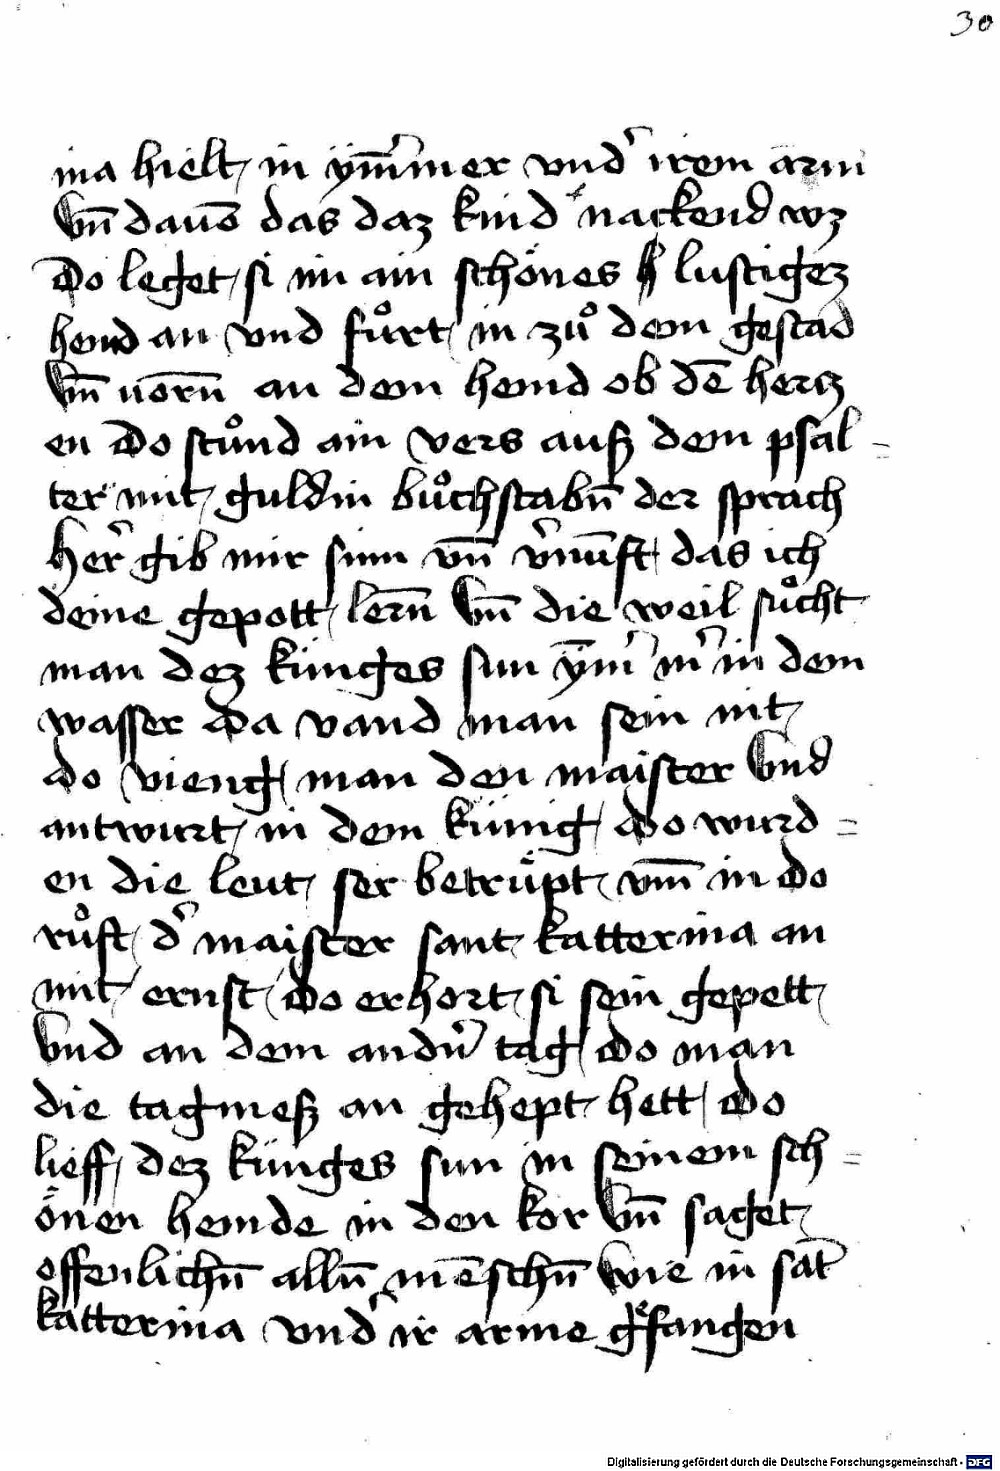 30
ina hielt in ÿm̄mer vnd' irem arm
vn̄ dauō das daz kind nackend wz
Do leget si im ain schönes lustigez
hemd an vnd fůrt in zů dem gestad
vn̄ uorn̄ an dem hemd ob dē hercz
en Do stůnd ain vers auß dem psal=
ter mit guldin bůchstabn̄ der sprach
Her' gib mir sinn vn̄ v'nūnft das ich
deine gepott lern̄ vn̄ die weil sůcht
man dez küniges sun ÿm̄ m' in dem
wasser Da vand man sein nit
do vieng man den maister vnd
antwurt in dem künig do wurd=
en die leut ser betrüpt vm̄ in Do
růft d' maister sant katterina an
mit ernst Do erhort si sein gepett
vnd an dem andn̄ tag Do man
die tagmeß an gehept hett Do
lieff dez küniges sun in seinem sch=
önen hemde in den kor vn̄ saget
offenlichn̄ alln̄ mēschn̄ wie in sāt
katterina vnd' ir arme gefangen
Digitalisierung gefördert durch die Deutsche Forschungsgemeinschaft - DFG